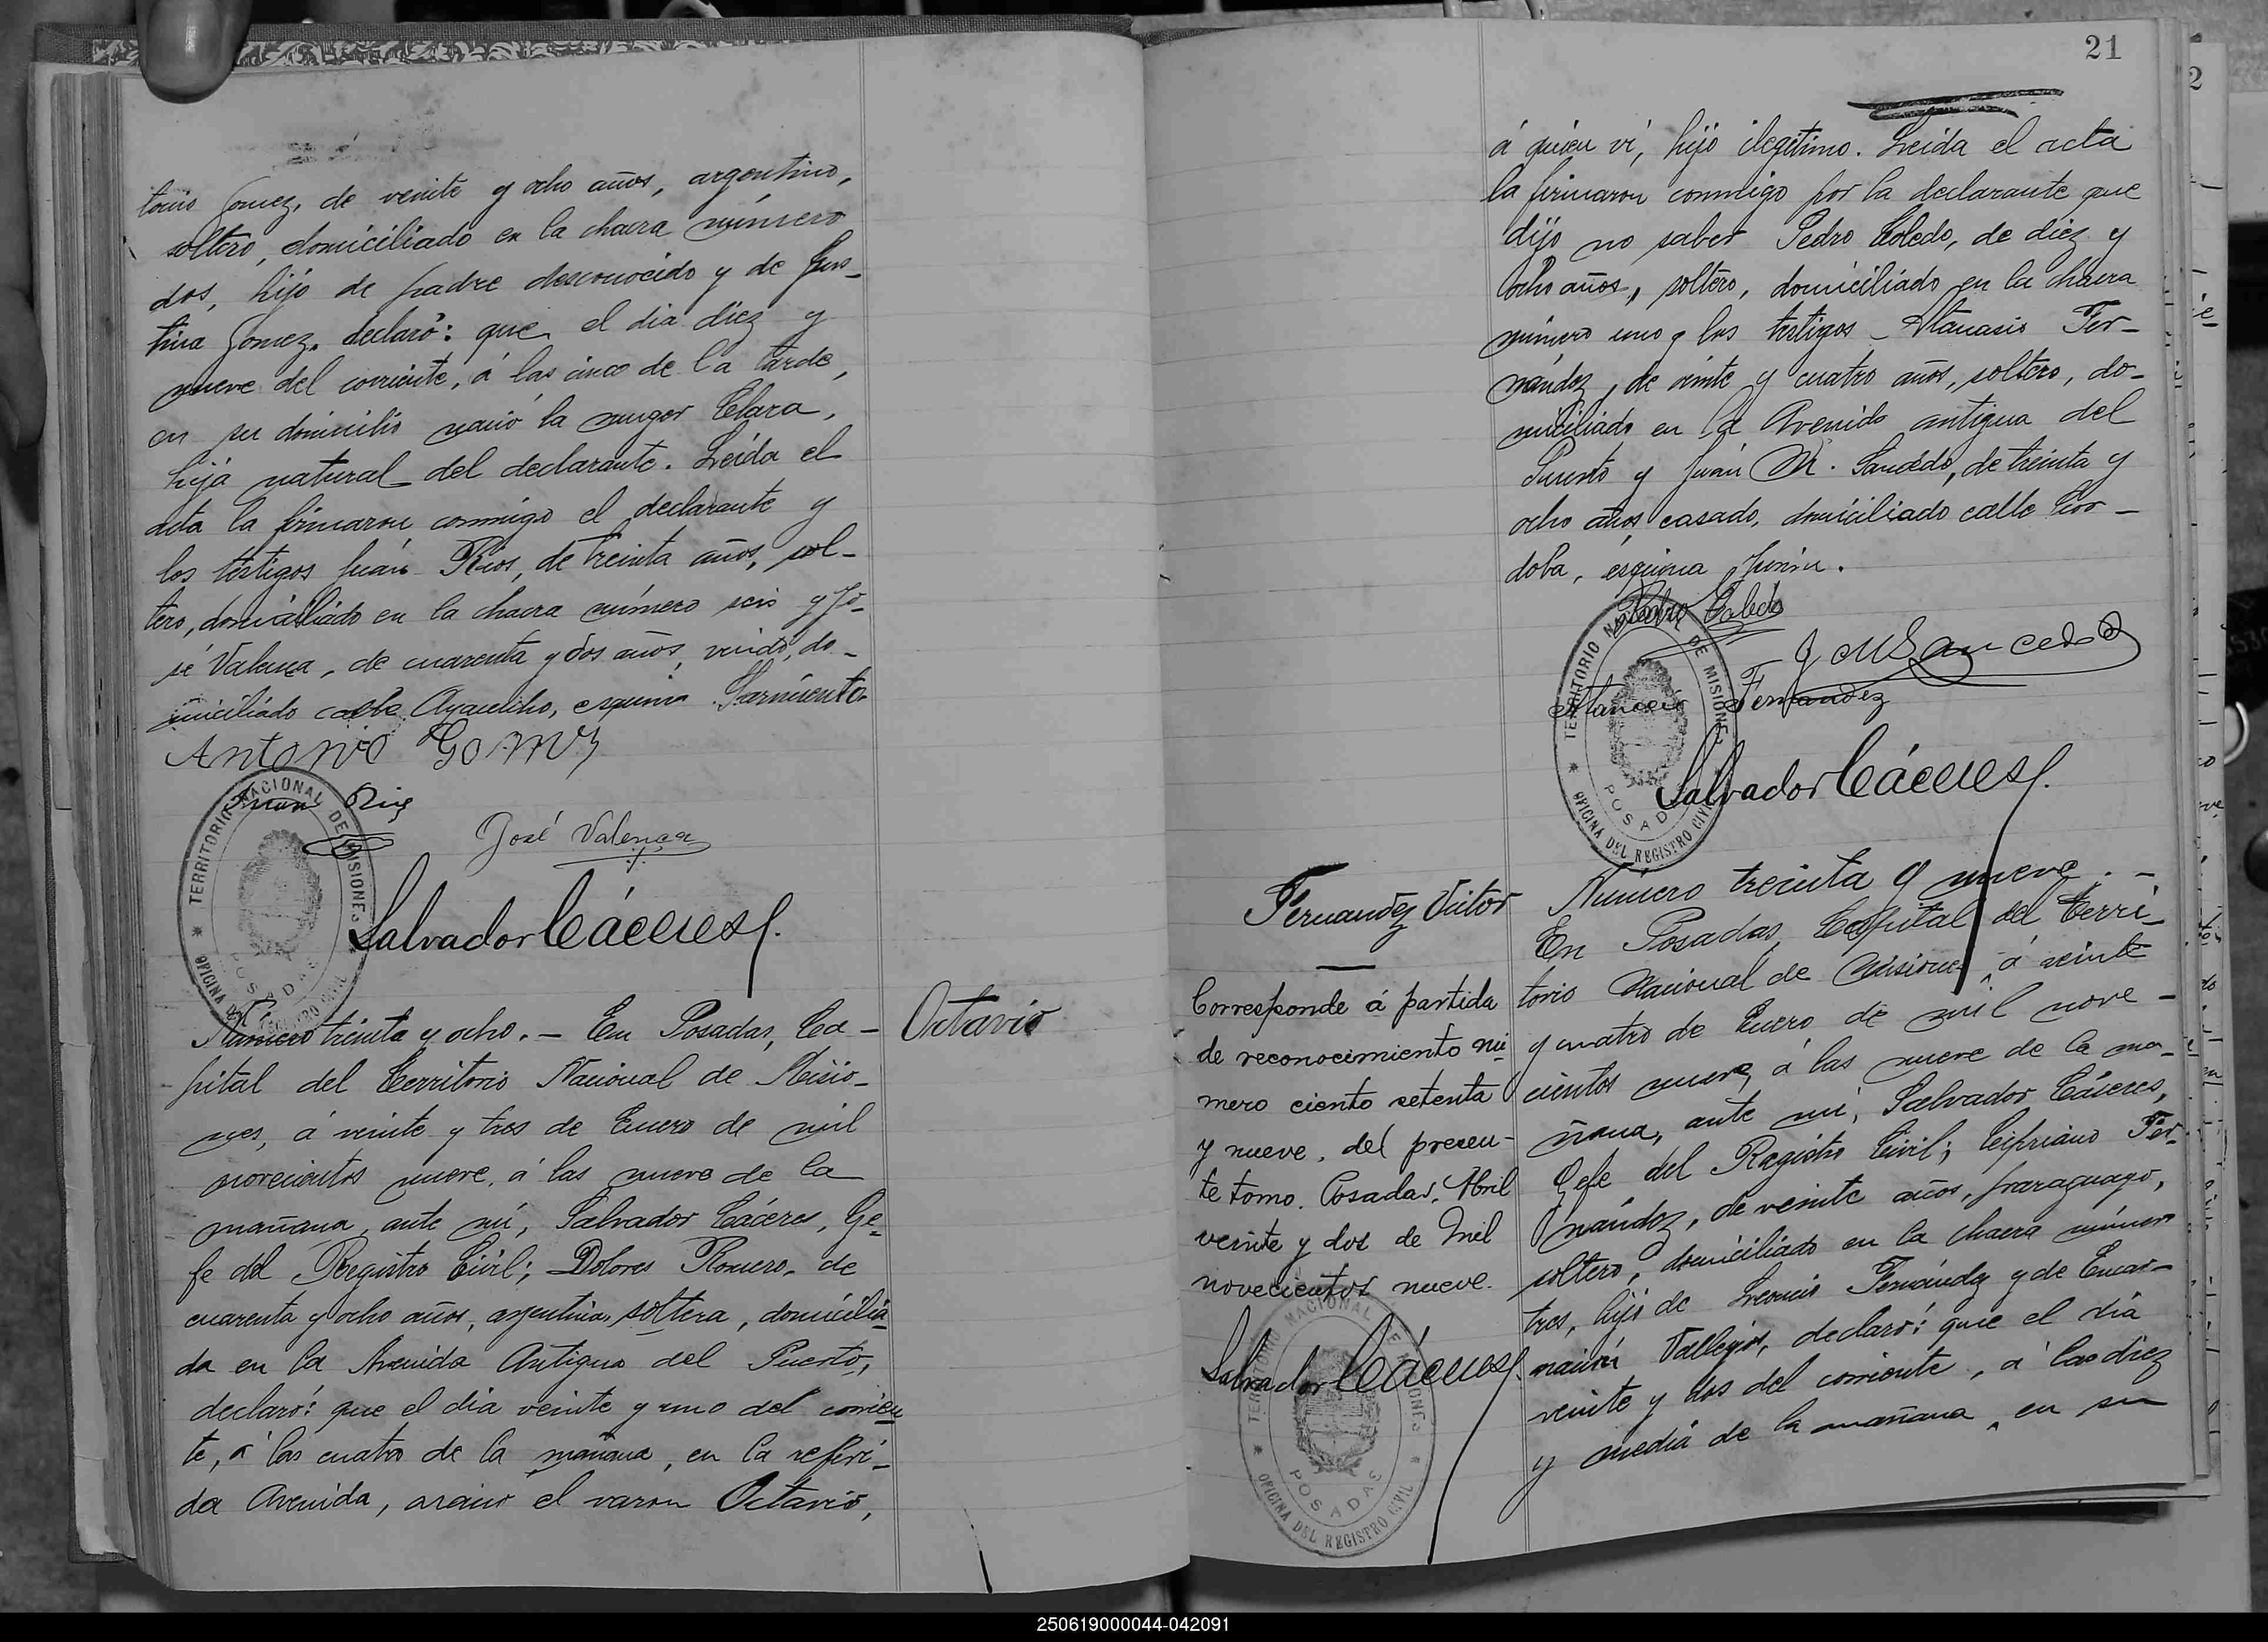 tonio Gomez, de veinte y ocho años, argentino,
soltero, domiciliado en la chacra número
dos, hijo de padre desconocido y de Jus-
tina Gomez, declaró: que el dia diez y
nueve del corriente, á las cinco de la tarde,
en su domicilio nació la muger Clara,
hija natural del declarante. Leída el
acta la firmaron conmigo el declarante y
los testigos Juan Rios, de treinta años, sol-
tero, domiciliado en la chacra número seis y Jo-
sé Valensa, de cuarenta y dos años, viudo, do-
miciliado calle Ayacucho, esquina Sarmiento.
Antonio Gomez
Juan Rios
José Valença
TERRITORIO NACIONAL DE MISIONES
OFICINA DEL REGISTRO CIVIL
POSADAS
Salvador Cáceres
Número treinta y ocho.- En Posadas, Ca-
pital del Territorio Nacional de Misio-
nes, á veinte y tres de Enero de mil
novecientos nueve, á las nueve de la
mañana, ante mí, Salvador Cáceres, Ge-
fe del Registro Civil; Dolores Romero, de
cuarenta y ocho años, argentina, soltera, domicilia-
da en la Avenida Antigua del Puerto,
declaró: que el dia veinte y uno del corrien-
te, á las cuatro de la mañana, en la referi-
da Avenida, nació el varon Octavio,
Octavio
21
á quien ví, hijo ilegítimo. Leída el acta
la firmaron conmigo por la declarante que
dijo no saber Pedro Toledo, de diez y
ocho años, soltero, domiciliado en la chacra
número uno y los testigos Atanasio Fer-
nández, de veinte y cuatro años, soltero, do-
miciliado en la Avenida antigua del
Puerto y Juan M. Saucedo, de treinta y
ocho años, casado, domiciliado calle Cor-
doba, esquina Junin.
Pedro Toledo
J M Saucedo
Atanacio Fernandez
TERRITORIO NACIONAL DE MISIONES
OFICINA DEL REGISTRO CIVIL
POSADAS
Salvador Cáceres
Fernandez Victor
Corresponde á partida
de reconocimiento nú-
mero ciento setenta
y nueve, del presen-
te tomo. Posadas, Abril
veinte y dos de mil
novecientos nueve.
Salvador Cáceres
TERRITORIO NACIONAL DE MISIONES
OFICINA DEL REGISTRO CIVIL
POSADAS
Número treinta y nueve.-
En Posadas, Capital del Terri-
torio Nacional de Misiones, á veinte
y cuatro de Enero de mil nove-
cientos nueve, á las nueve de la ma-
ñana, ante mí, Salvador Cáceres,
Gefe del Registro Civil; Cipriano Fer-
nández, de veinte años, paraguayo,
soltero, domiciliado en la chacra número
tres, hijo de Leoncio Fernández y de Encar-
nación Vallejos, declaró: que el día
veinte y dos del corriente, á las diez
y media de la mañana, en su
250619000044-042091